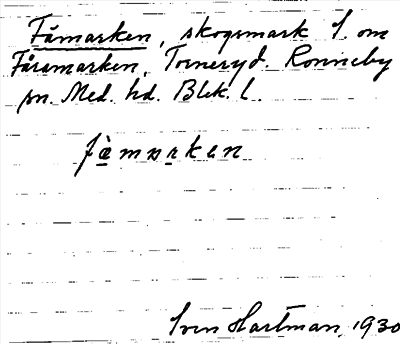 Fämarken, skogsmark S. om
Fårамarken, Torneryd. Ronneby
sn. Med. hd. Blek. l.
fæ̀marken
Sven Hartman, 1930